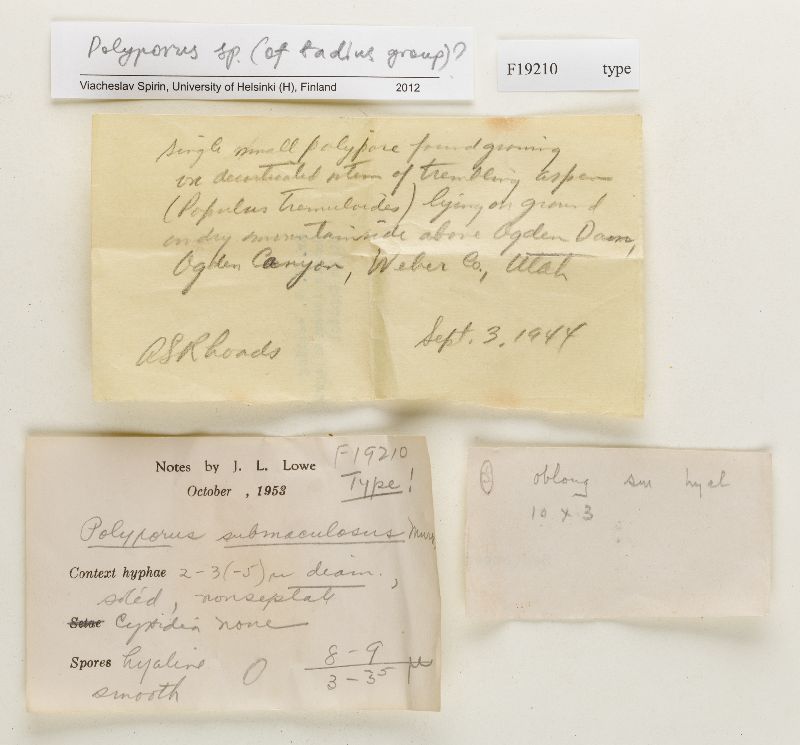 Polyporus sp. (of badius group)?
Viacheslav Spirin, University of Helsinki (H), Finland 2012
F19210 type
single small polypore found growing
on decorticated stem of trembling aspen
(Populus tremuloides) lying on ground
on dry mountainside above Ogden Dam,
Ogden Canyon, Weber Co., Utah
ASRhoads Sept. 3, 1944
Notes by J. L. Lowe
October , 1953
F19210
Type!
Polyporus submaculosus Murr
Context hyphae 2-3(-5) µ diam.,
nonseptate
Setae Cystidia none
Spores hyaline
smooth
8-9
3-3⁵ µ
oblong sm hyal
10 x 3